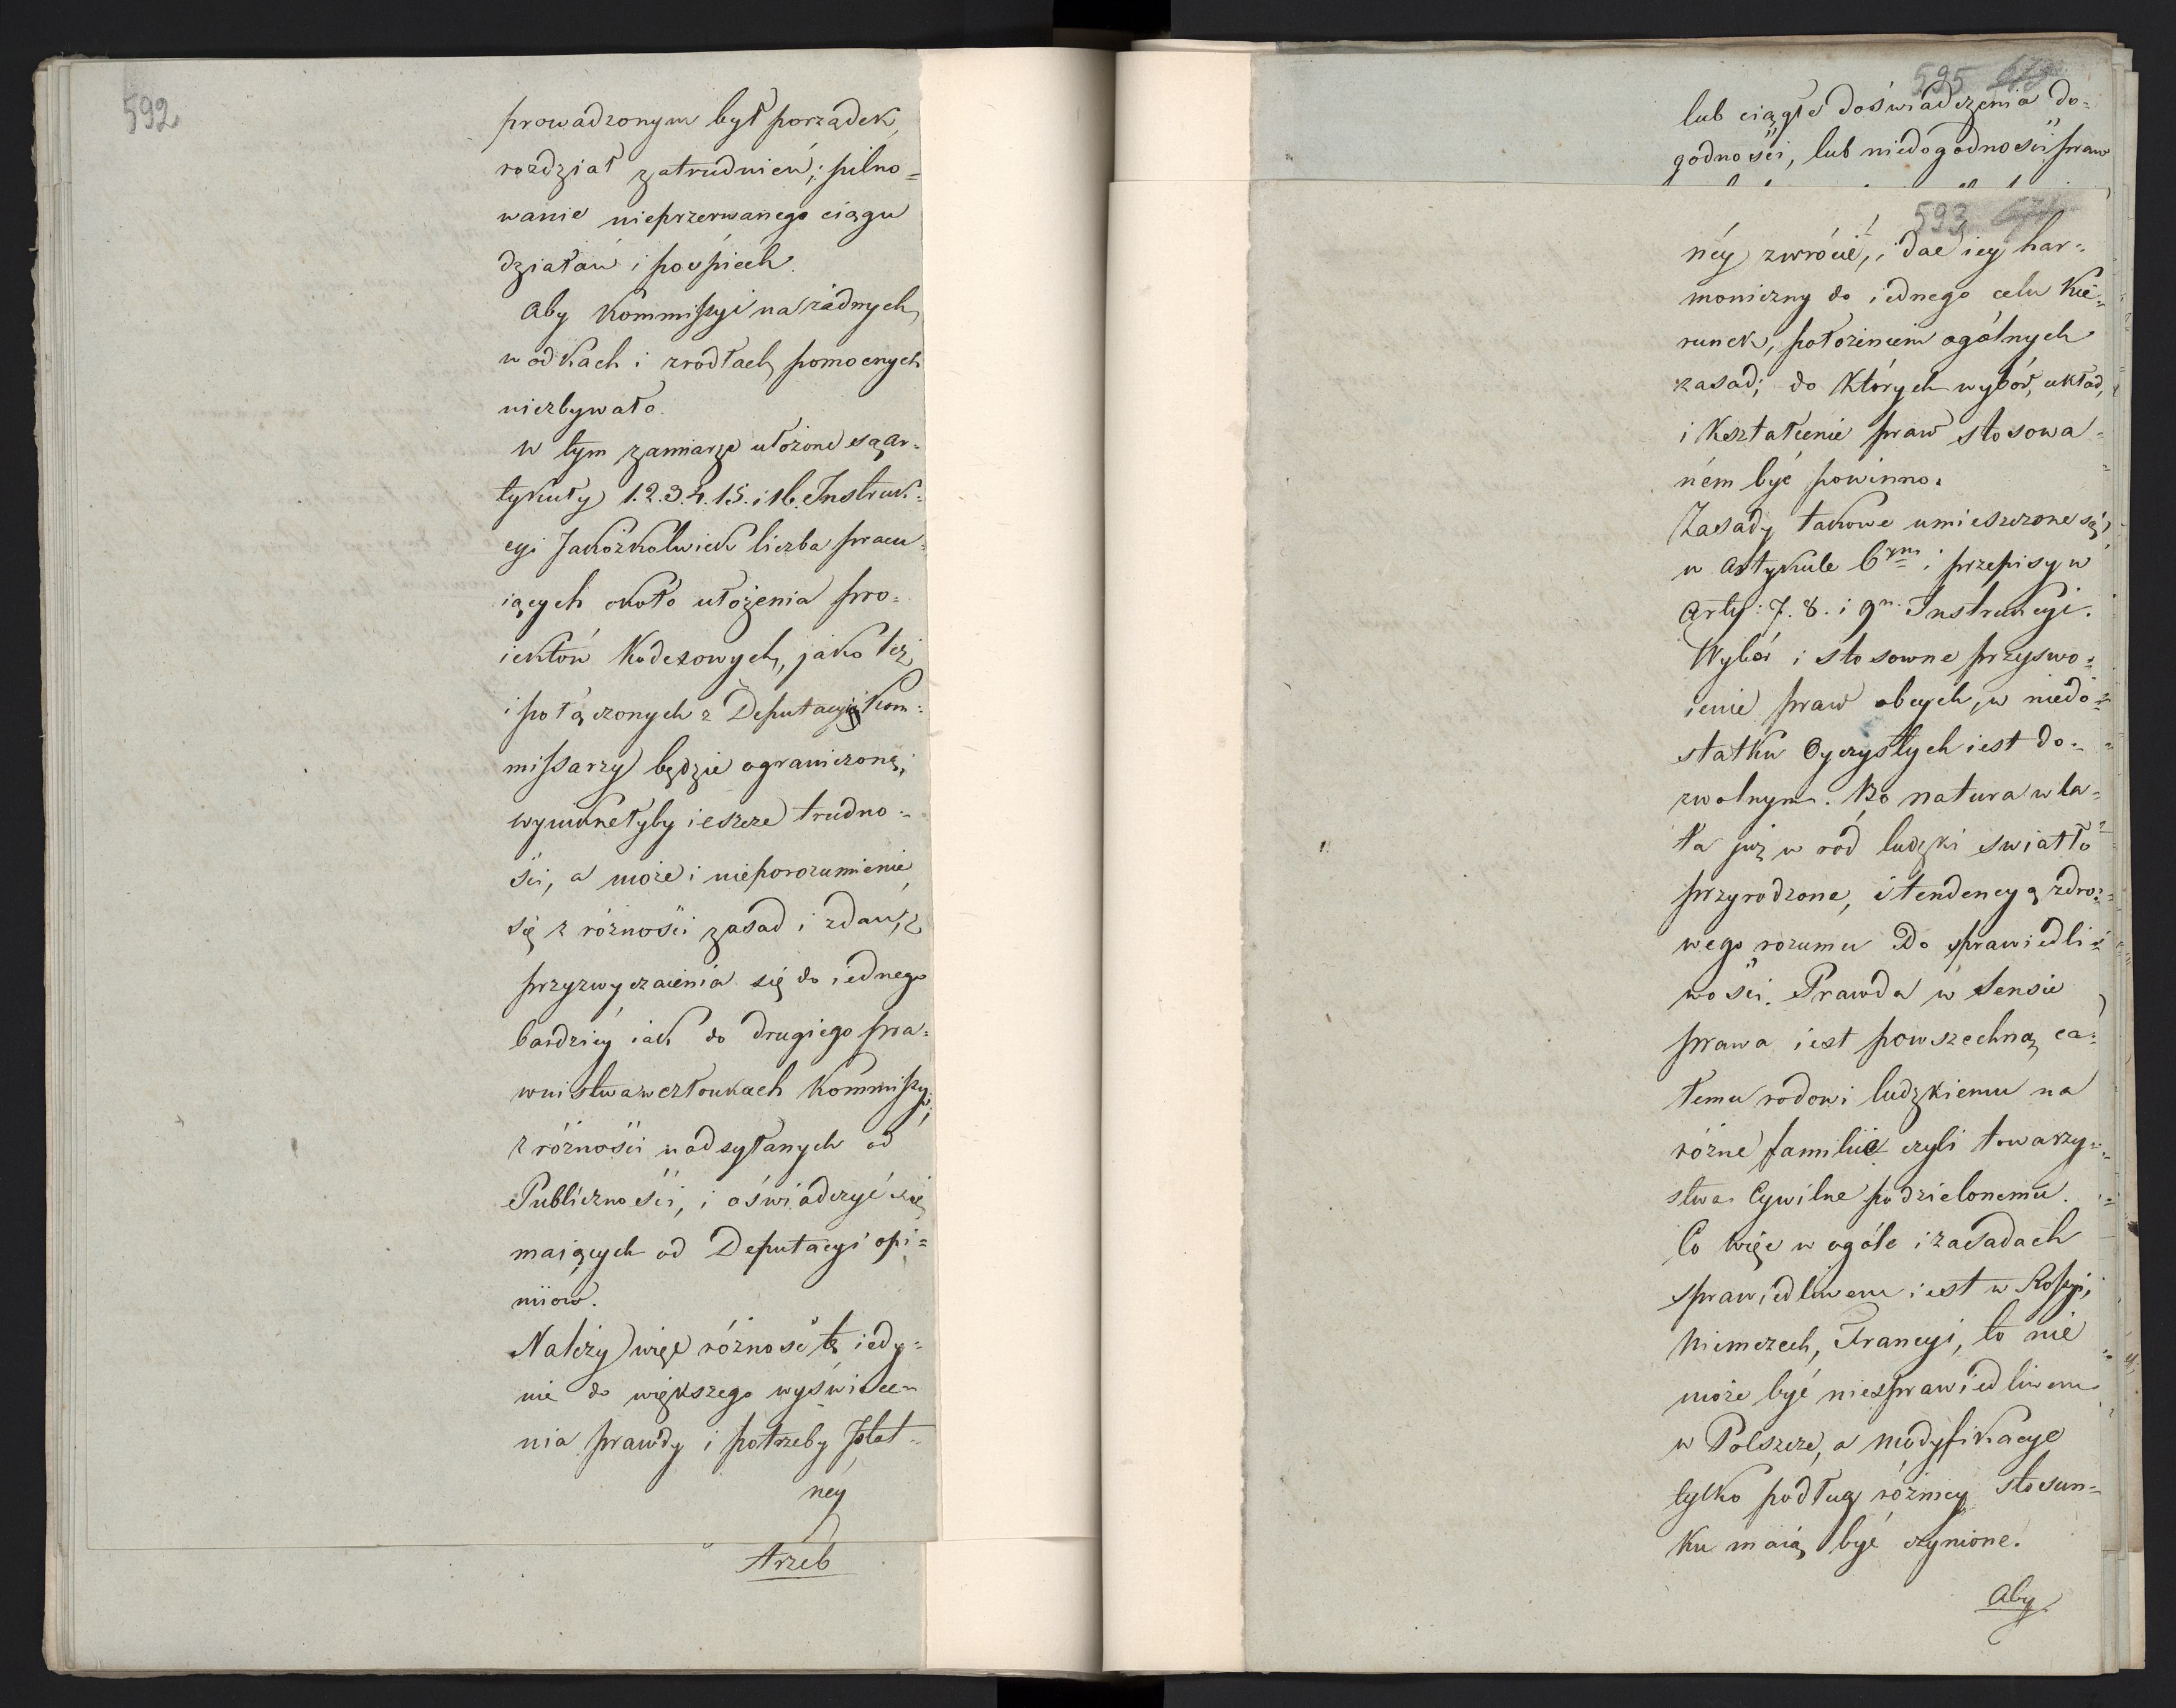 592
prowadzonym był porządek,
rozdział zatrudnień; pilno=
wanie nieprzerwanego ciągu
działań i pośpiech.
Aby Kommissyi na żadnych
wodkach i zrodłach pomocnych
niezbywało.
W tym zamiarze ułożone są ar=
tykuły 1.2.3.4.15. i 16. Instruk=
cyi Jakóżkolwiek liczba pracu=
iących około ułożenia pro=
iektów Kodexowych, jako też
i połączonych z Deputacyią Kom=
missarzy będzie ograniczoną;
wyniknęłyby ieszcze trudno=
ści, a może i nieporozumienie
się z różności zasad i zdań, z
przyzwyczaienia się do iednego
bardziey iak do drugiego pra=
wnistwa w członkach Kommissyi,
z różności nadsyłanych od
Publiczności, i oświadczyć się
maiących od Deputacyi opi=
niiow.
Należy więc różność tę iedy=
nie do większego wyświece=
nia prawdy i potrzeby istot=
ney
trzeb
595
lub ciągłe doświadczenia do=
godności, lub niedogodności praw
593
néy zwrócić, i dać iey har=
moniczny do iednego celu Kie=
runek, położeniem ogólnych
zasad; do których wybór, układ,
i Kształcenie praw stosowa=
ném być powinno.
Zasady takowe umieszczone są
w Artykule 6ym i przepisy w
Arty: 7. 8. i 9m. Instrukcyi.
Wybór i stosowne przyswo=
ienie praw obcych, w niedo=
statku Oyczystych iest do=
zwolnym. Bo natura wla=
ła już w ród ludzki swiatło
przyrodzone, i tendencyą zdro=
wego rozumu do sprawiedli=
wości. Prawda w Sensie
prawa iest powszechną ca=
łemu rodowi ludzkiemu na
różne familiie czyli towarzy=
stwa Cywilne podzielonemu.
Co więc w ogóle i zasadach
sprawiedliwem iest w Rossyi,
Niemczech, Francyi, to nie
może być niesprawiedliwem
w Polszcze, a modyfikacye
tylko podług różnicy stosun=
ku maią być czynione.
Aby